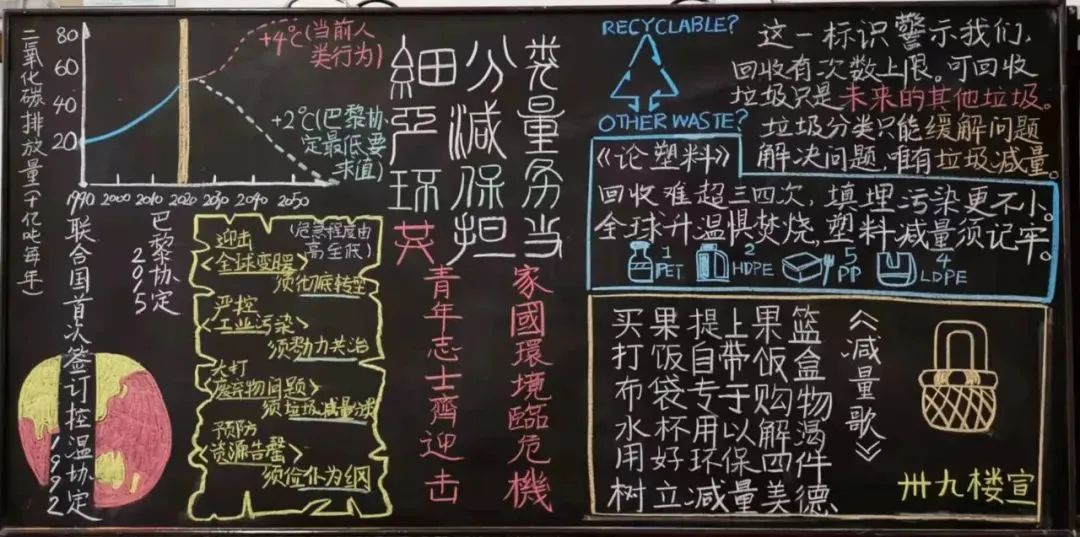 二氧化碳排放量(十亿吨每年)
80
60
40
20
1990 2000 2010 2020 2030 2040 2050
+4℃(当前人
类行为)
+2℃(巴黎协
定最低要
求值)
联合国首次签订控温协定1992
巴黎协定
2015
(危急程度由
高至低)
迎击
<全球变暖>
须彻底转型
严控
<工业污染>
须勠力共治
大打
<废弃物问题>
须垃圾减量分类
预防
<资源告罄>
须俭朴为纲
細分类
严減量
环保务
共担当
家國環境臨危機
青年志士齊迎击
RECYCLABLE?
OTHER WASTE?
这一标识警示我们,
回收有次数上限。可回收
垃圾只是未来的其他垃圾。
垃圾分类只能缓解问题
解决问题,唯有垃圾减量。
《论塑料》
回收难超三四次,填埋污染更不小。
全球升温惧焚烧,塑料减量须记牢。
1 PET
2 HDPE
5 PP
4 LDPE
《减量歌》
买果提上果篮
打饭自带饭盒
布袋专于购物
水杯用以解渴
用好环保四件
树立减量美德
卅九楼宣